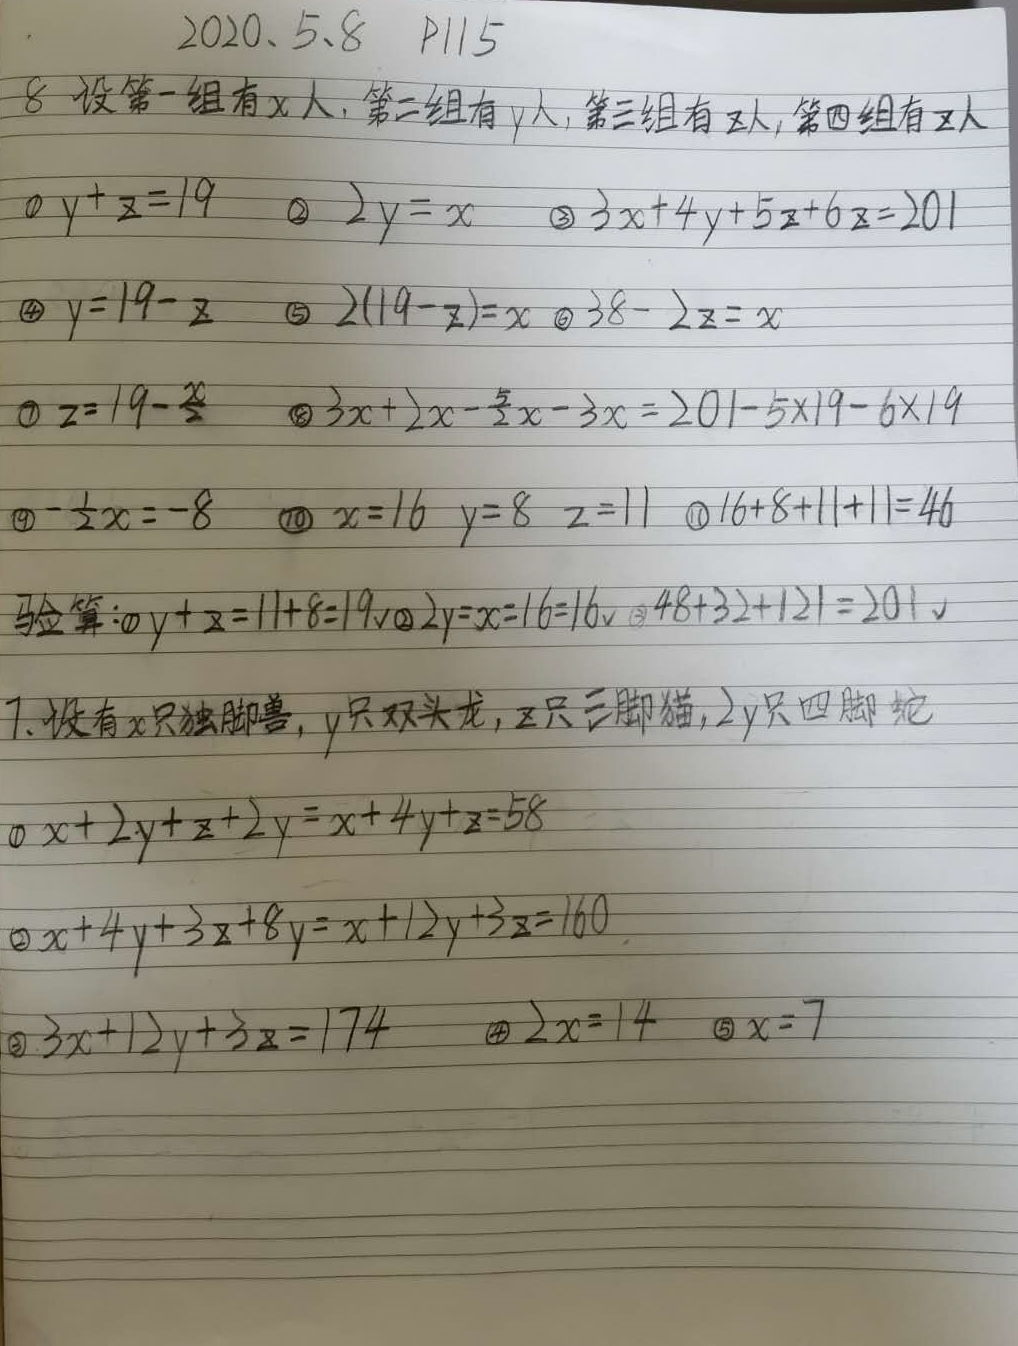 2020、5、8 P115
8 设第一组有x人,第二组有y人,第三组有z人,第四组有z人
① y+z=19 ② 2y=x ③ 3x+4y+5z+6z=201
④ y=19-z ⑤ 2(19-z)=x ⑥ 38-2z=x
⑦ z=19-x/2 ⑧ 3x+2x-5/2x-3x=201-5×19-6×19
⑨ -1/2x=-8 ⑩ x=16 y=8 z=11 ⑪ 16+8+11+11=46
验算:① y+z=11+8=19✓② 2y=x=16=16✓ ③ 48+32+121=201✓
7.设有x只独脚兽,y只双头龙,z只三脚猫,2y只四脚蛇
① x+2y+z+2y=x+4y+z=58
② x+4y+3z+8y=x+12y+3z=160
③ 3x+12y+3z=174 ④ 2x=14 ⑤ x=7